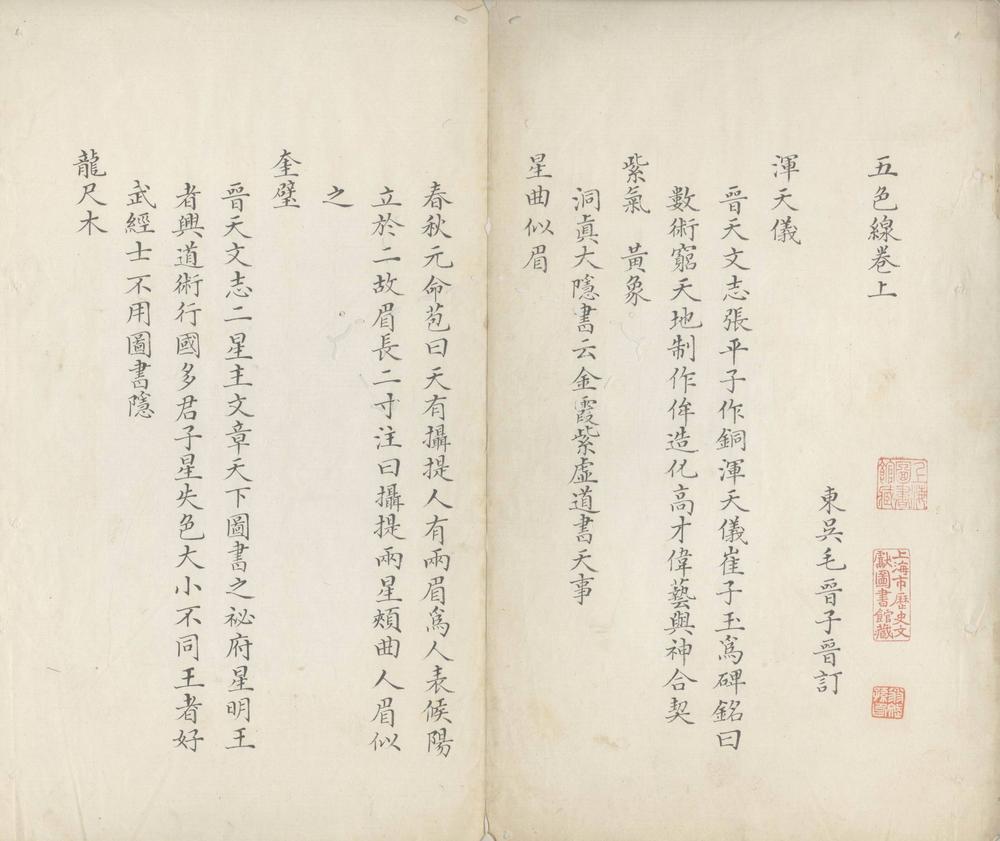 五色線卷上
東吳毛晉子晉訂
渾天儀
晉天文志張平子作銅渾天儀崔子玉爲碑銘曰
數術窮天地制作侔造化高才偉藝與神合契
紫氣　黃象
洞眞大隱書云金霞紫虛道書天事
星曲似眉
春秋元命苞曰天有攝提人有兩眉爲人表候陽
立於二故眉長二寸注曰攝提兩星頰曲人眉似
之
奎璧
晉天文志二星主文章天下圖書之祕府星明王
者興道術行國多君子星失色大小不同王者好
武經士不用圖書隱
龍尺木
上海圖書館藏
上海市歷史文獻圖書館藏